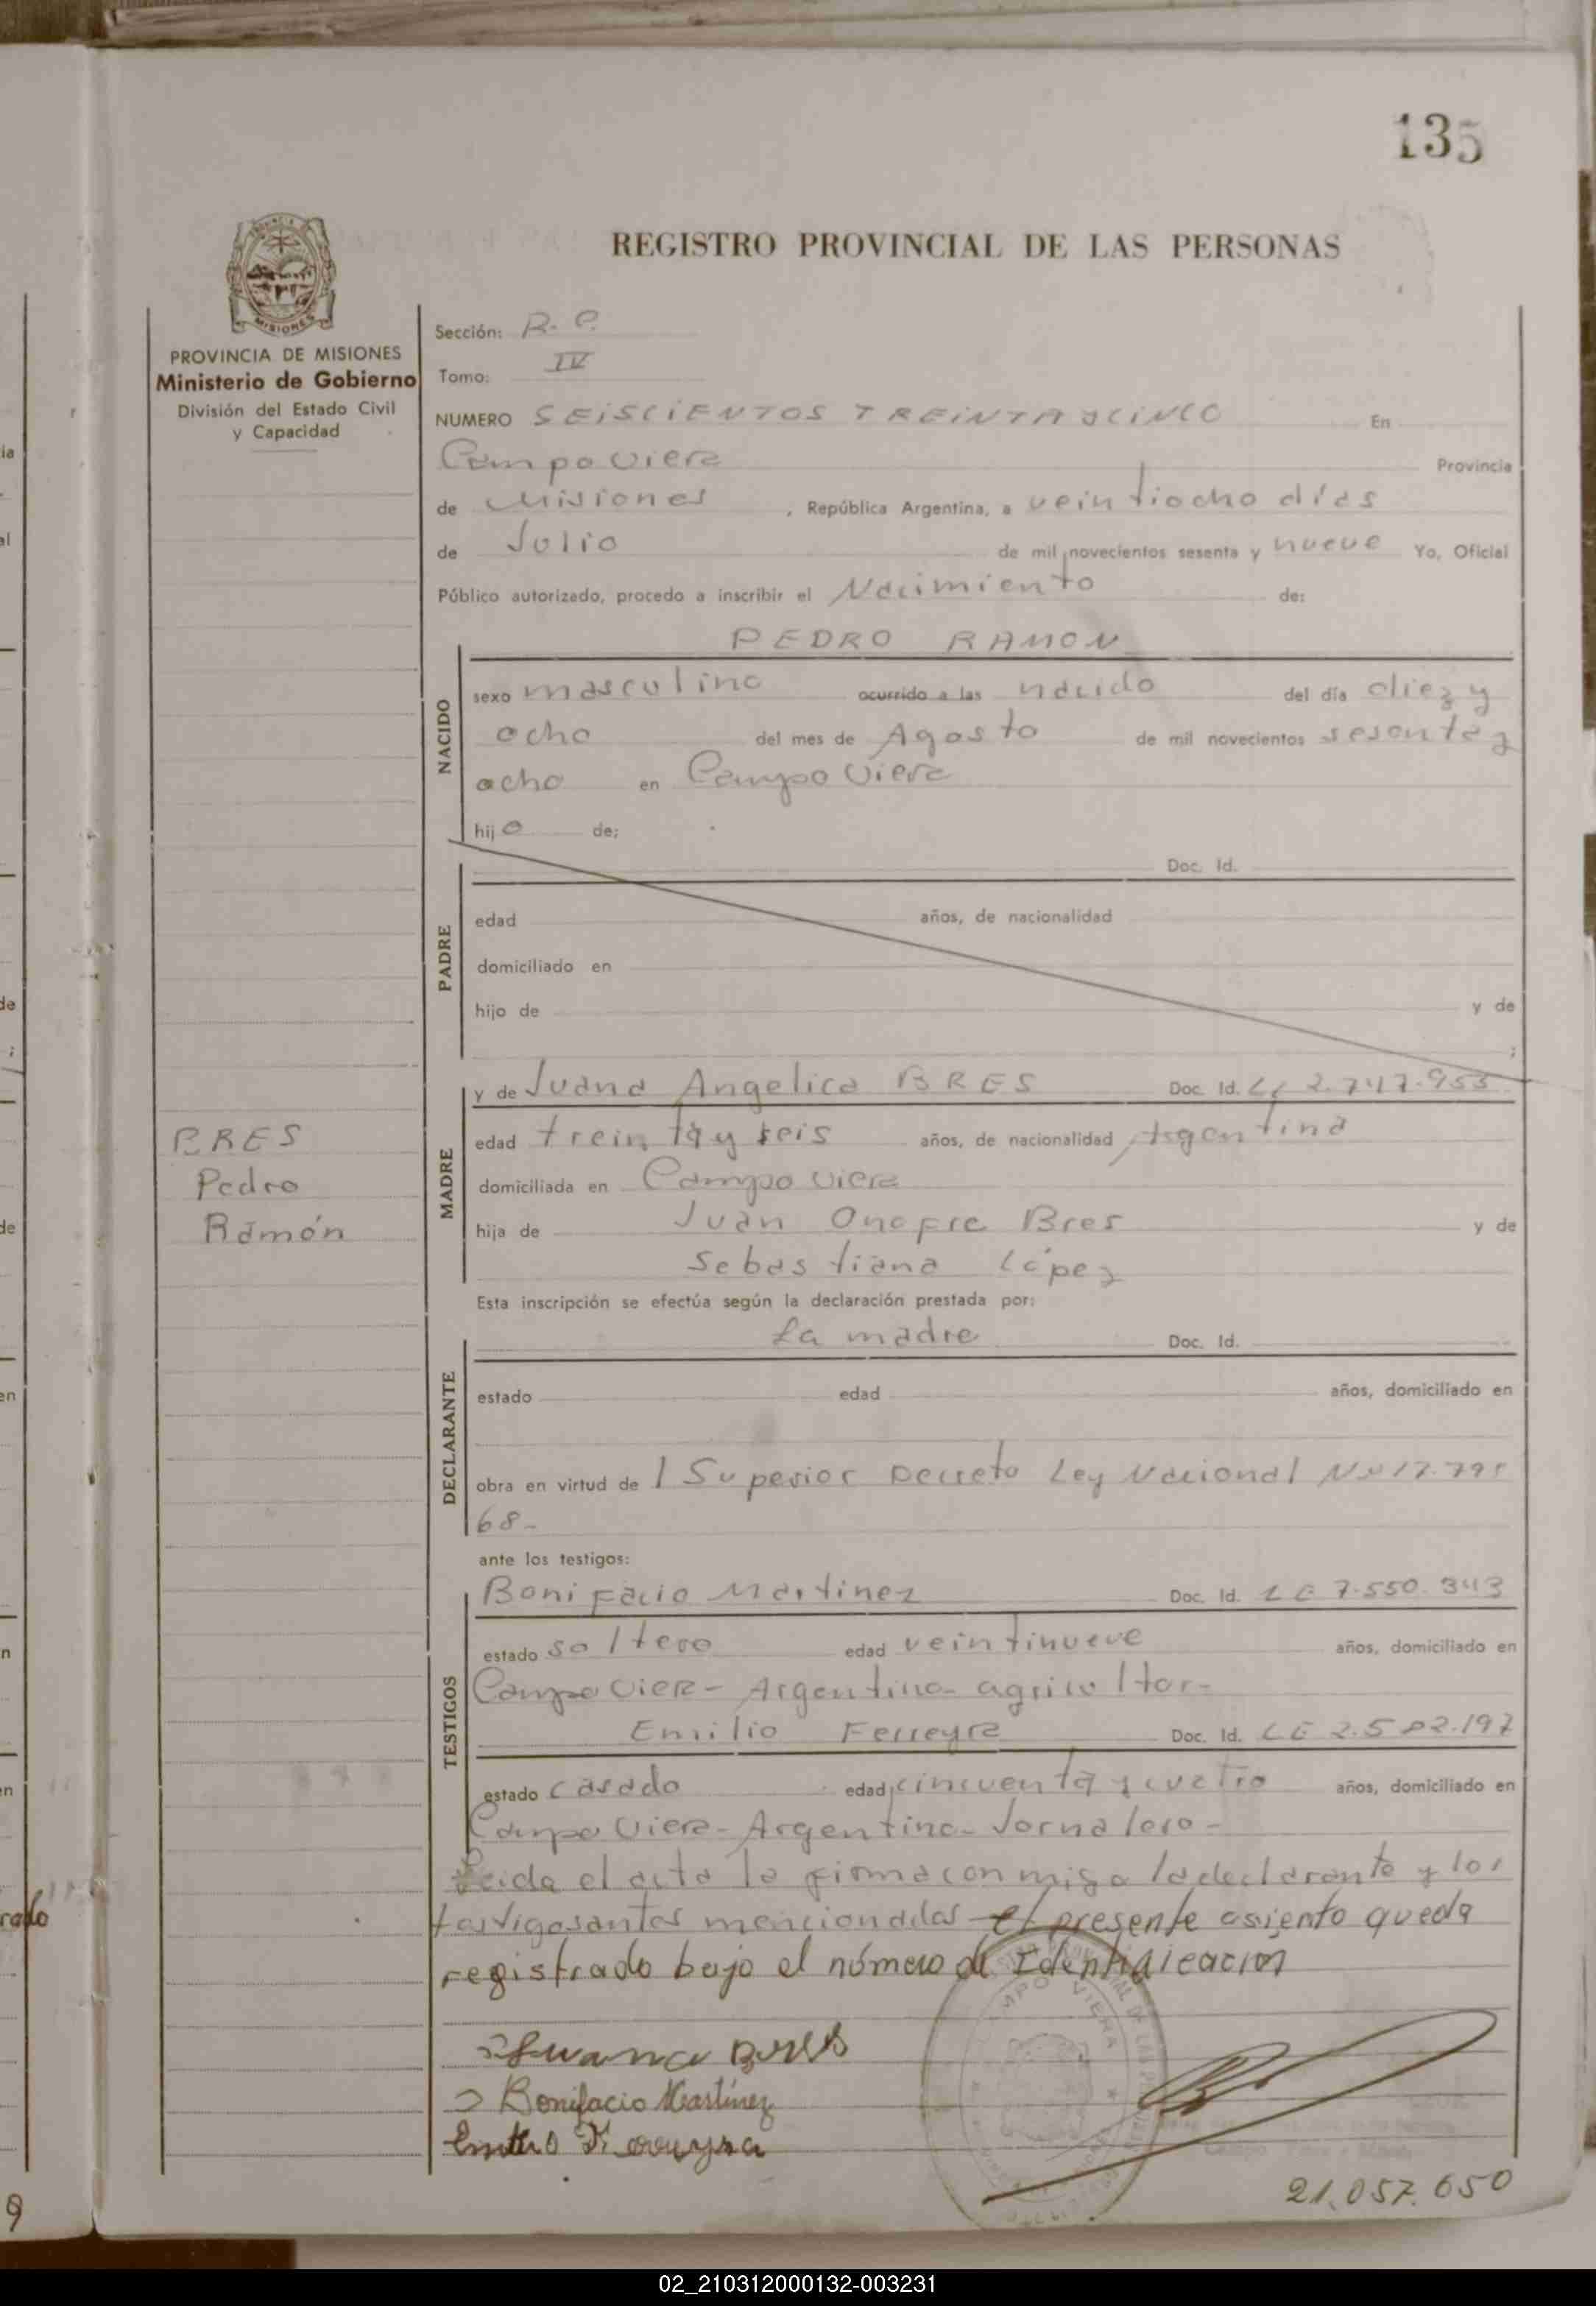 135
REGISTRO PROVINCIAL DE LAS PERSONAS
PROVINCIA DE MISIONES
Ministerio de Gobierno
División del Estado Civil
y Capacidad
Sección:
Tomo: IV
NUMERO SEISCIENTOS TREINTA Y CINCO En
Campo Viera Provincia
de Misiones, República Argentina, a veintiocho días
de Julio de mil novecientos sesenta y nueve Yo, Oficial
Público autorizado, procedo a inscribir el Nacimiento de:
PEDRO RAMON
NACIDO
sexo masculino ocurrido a las nacido del día diez y
ocho del mes de Agosto de mil novecientos sesenta y
ocho en Campo Viera
hijo de;
PADRE
Doc. Id.
edad años, de nacionalidad
domiciliado en
hijo de y de
;
MADRE
y de Juana Angelica BRES Doc. Id. 2.747.953
edad treinta y seis años, de nacionalidad Argentina
domiciliada en Campo Viera
hija de Juan Onofre Bres y de
Sebastiana López
BRES
Pedro
Ramón
Esta inscripción se efectúa según la declaración prestada por:
DECLARANTE
La madre Doc. Id.
estado edad años, domiciliado en
obra en virtud de l Superior Decreto Ley Nacional
68-
ante los testigos:
TESTIGOS
Bonifacio Martinez Doc. Id. LE 7.550.343
estado soltero edad veintinueve años, domiciliado en
Campo Viera- Argentino- agricultor-
Emilio Ferreyra Doc. Id. LE 2.582.197
estado casado edad cincuenta y cuatro años, domiciliado en
Campo Viera- Argentino- Jornalero-
Leida el acta la firma conmigo la declarante y los
testigos antes mencionados el presente asiento queda
registrado bajo el número de Identificacion
Juana Bres
Bonifacio Martínez
21.057.650
02_210312000132-003231